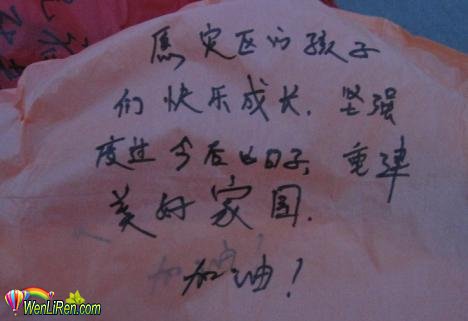 愿灾区的孩子
们快乐成长.坚强
度过今后的日子,重建
美好家园.
加油!
WenLiRen.com